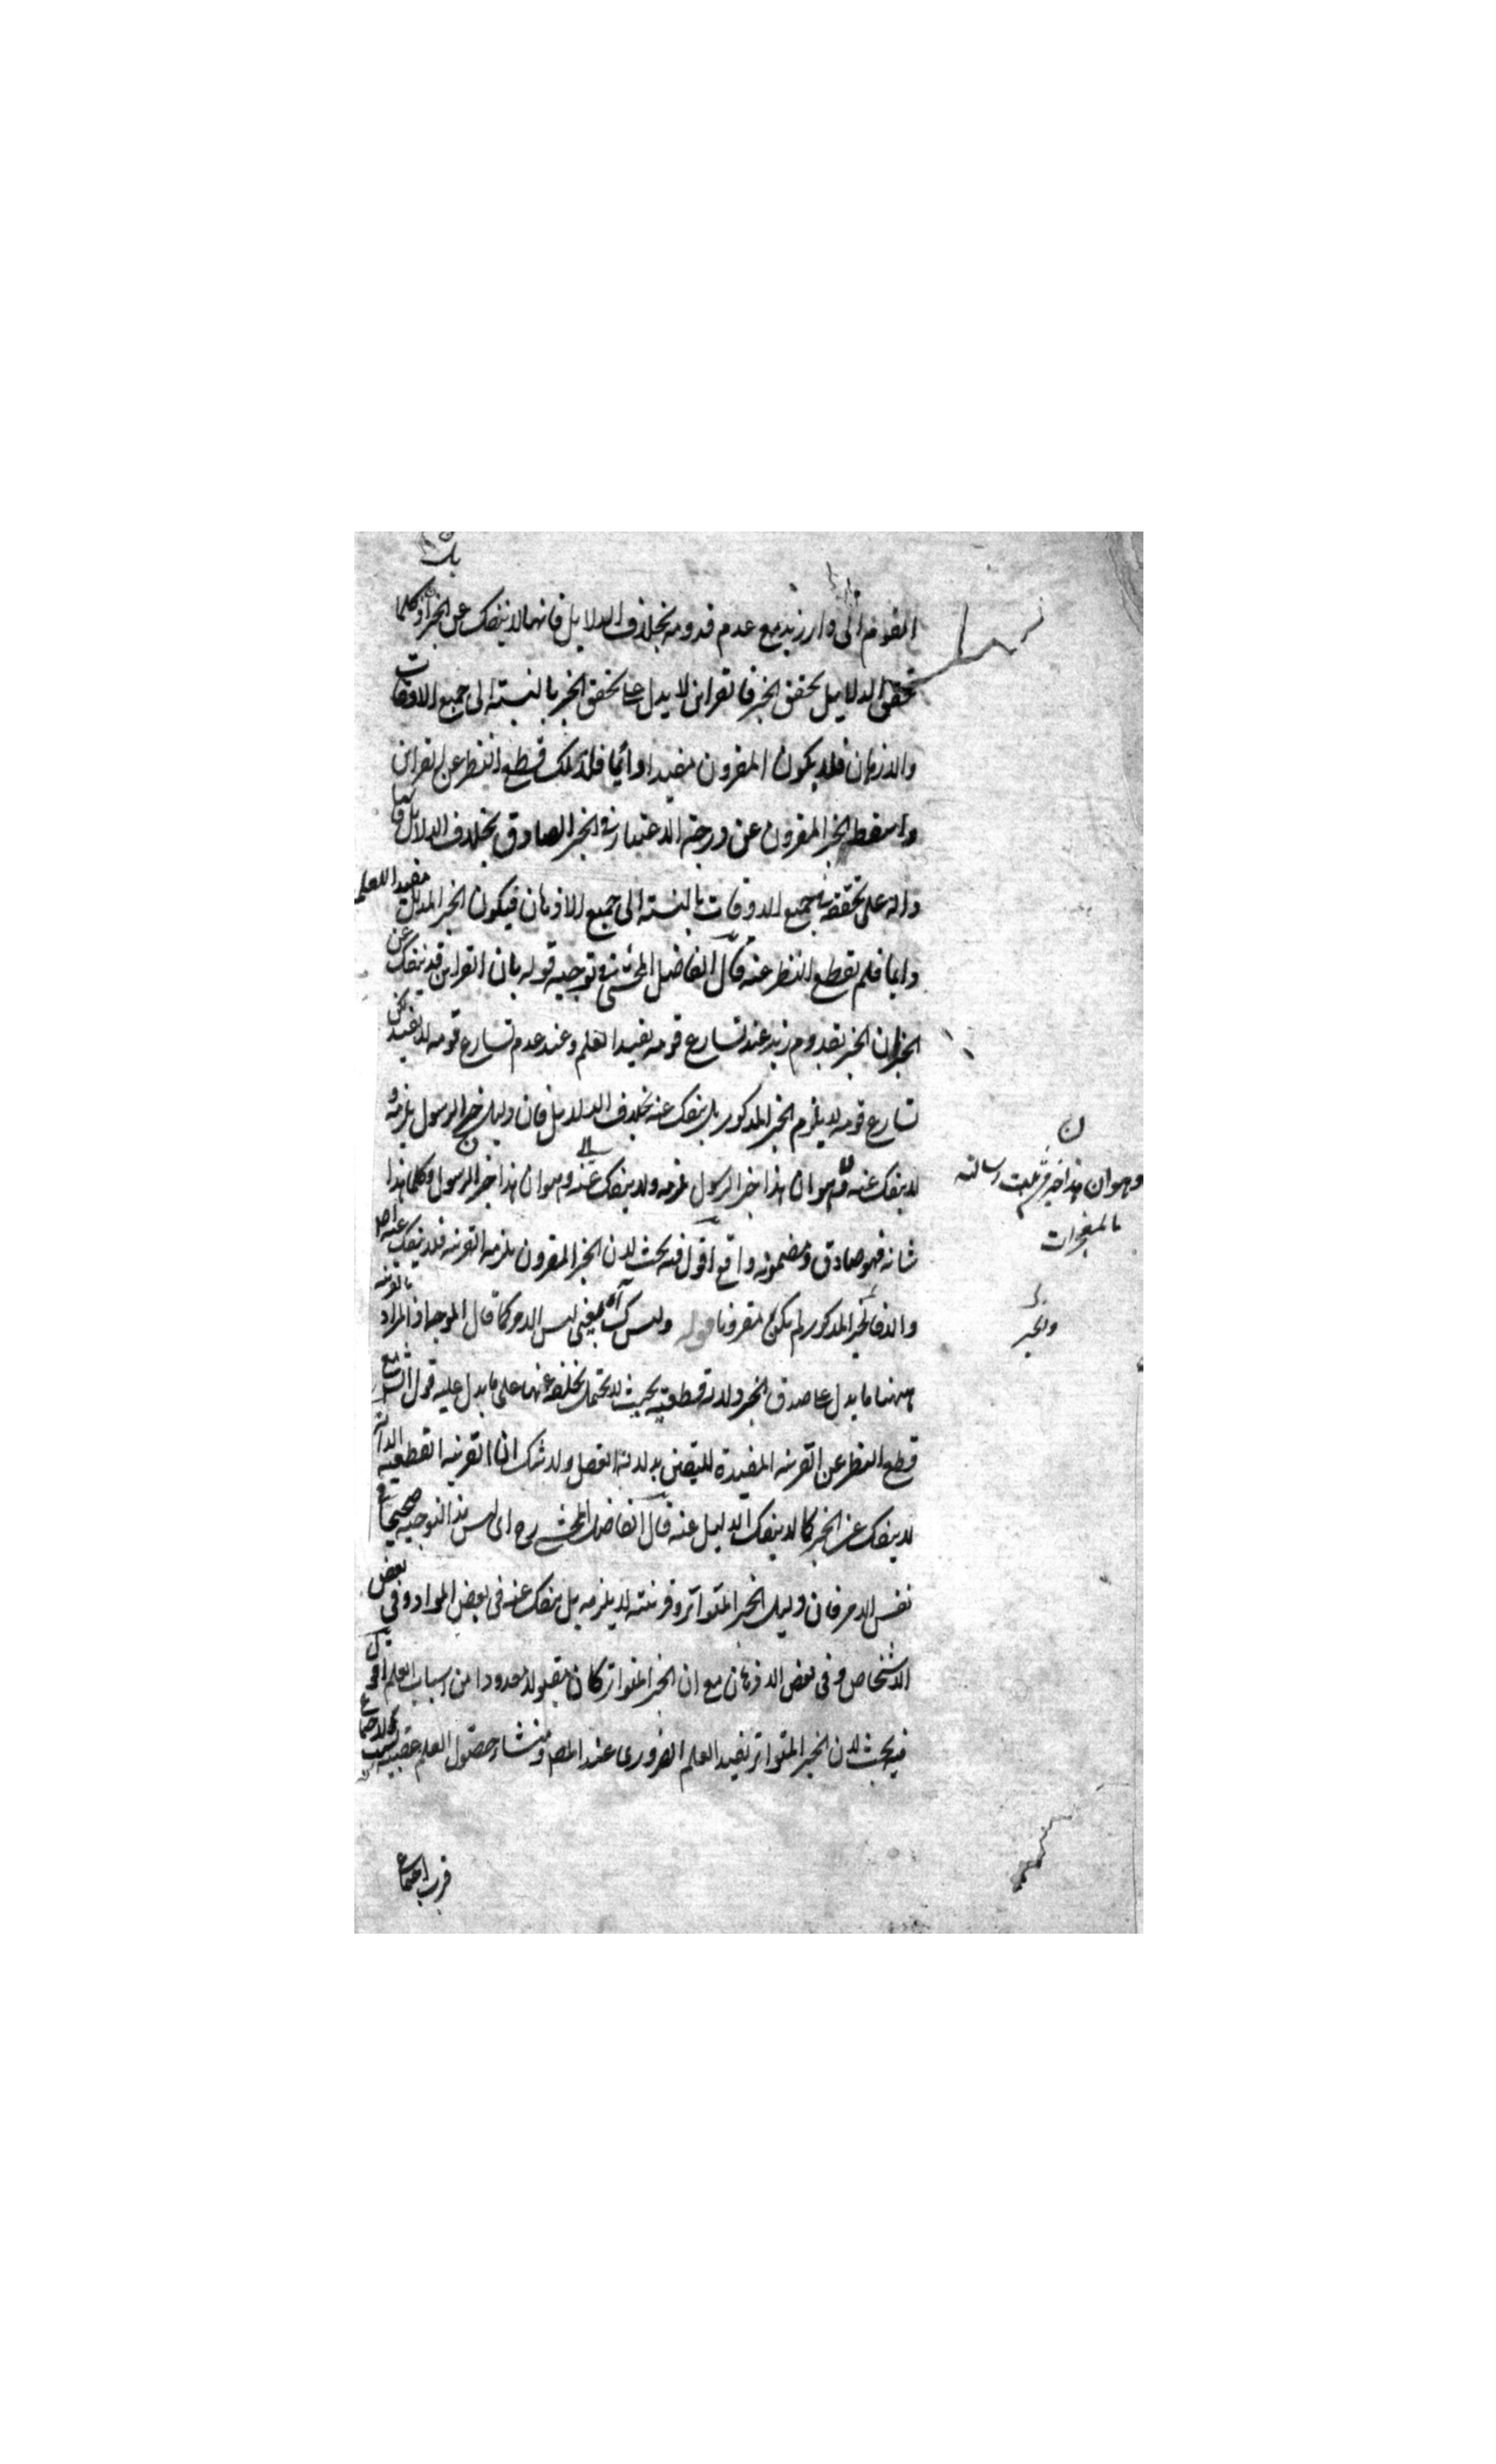 القوم الى دار زيد مع عدم قدومه بخلاف الدلايل فانها لا ينفك عن الخبر اذ كلما
تحقق الدلايل تحقق الخبر فالقراين لا يدل على تحقق الخبر بالنسبة الى جميع الاوقات
والازمان فلا يكون المقرون مفيدا دائما فلذلك قطع النظر عن القراين
واسقط الخبر المقرون عن درجة الاعتبار في الخبر الصادق بخلاف الدلايل فانها
دالة على تحققه في جميع الاوقات بالنسبة الى جميع الازمان فيكون الخبر المدلل مفيدا للعلم
دايما فلم يقطع النظر عنه قال الفاضل المحشي في توجيه قوله بان القراين قد ينفك عن
الخبر ان الخبر بقدوم زيد عند تسارع قومه يفيد العلم وعند عدم تسارع قومه لا يفيد لكن
تسارع قومه لا يلزم الخبر المذكور بل ينفك عنه بخلاف الدلايل فان دليل خبر الرسول يلزمه و
لا ينفك عنه وهو ان هذا خبر الرسول يلزمه ولا ينفك عنه وهو ان هذا خبر الرسول وكلما هذا
شانه فهو صادق ومضمونه واقع اقول فيه بحث لان الخبر المقرون يلزمه القرينة فلا ينفك عنه اصلا
والا فالخبر المذكور لم يكن مقرونا بالقرينة قوله وليس كك آه يعني ليس الامر كما قال الموجه اذ المراد
ههنا ما يدل على صدق الخبر دلالة قطعية بحيث لا يحتمل تخلفه عنها على ما يدل عليه قول الشارح مع
قطع النظر عن القرينة المفيدة لليقين بدلالة العقل ولا شك ان القرينة القطعية الدالة
لا ينفك عن الخبر كما لا ينفك الدليل عنه قال الفاضل المحشي رح اى ليس هذا التوجيه صحيحا في
نفس الامر فان دليل الخبر المتواتر وقرينته لا يلزمه بل ينفك عنه في بعض المواد وفي بعض
الاشخاص وفي بعض الازمان مع ان الخبر المتواتر كان مقبولا معدودا من اسباب العلم اقول
فيه بحث لان الخبر المتواتر يفيد العلم الضرورى عند المص ومنشاء حصول العلم عقيبه
وهو ان هذا خبر من ثبت رسالته
بالمعجزات
والخبر